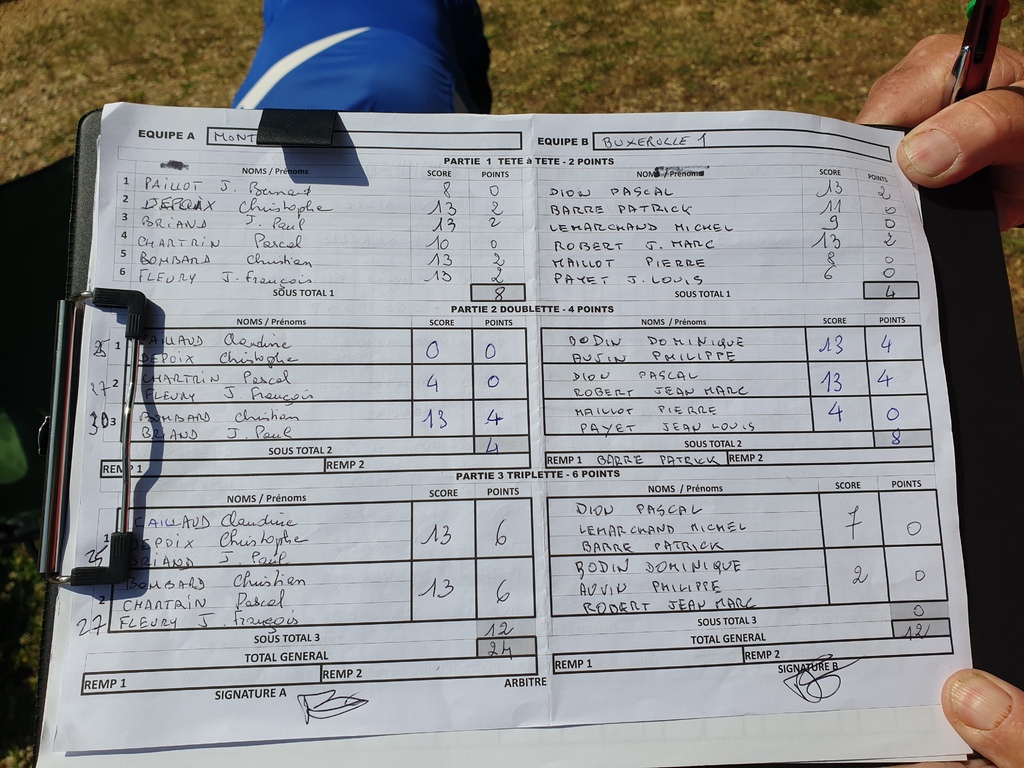 EQUIPE A MONT EQUIPE B BUXEROLLE 1
PARTIE 1 TETE à TETE - 2 POINTS
NOMS / Prénoms SCORE POINTS NOMS / Prénoms SCORE POINTS
1 PAILLOT J. Bernard 8 0 DION PASCAL 13 2
2 DEPOIX Christophe 13 2 BARRE PATRICK 11 0
3 BRIAND J. Paul 13 2 LEMARCHAND MICHEL 9 0
4 CHARTRIN Pascal 10 0 ROBERT J. MARC 13 2
5 BOMBARD Christian 13 2 MAILLOT PIERRE 8 0
6 FLEURY J. François 13 2 PAYET J. LOUIS 6 0
SOUS TOTAL 1 8 SOUS TOTAL 1 4
PARTIE 2 DOUBLETTE - 4 POINTS
NOMS / Prénoms SCORE POINTS NOMS / Prénoms SCORE POINTS
1 CAILLAUD Claudine 0 0 BODIN DOMINIQUE 13 4
DEPOIX Christophe AUVIN PHILIPPE
27 2 CHARTRIN Pascal 4 0 DION PASCAL 13 4
FLEURY J. François ROBERT JEAN MARC
30 3 BOMBARD Christian 13 4 MAILLOT PIERRE 4 0
BRIAND J. Paul PAYET JEAN LOUIS
SOUS TOTAL 2 4 SOUS TOTAL 2 8
REMP 1 REMP 2 REMP 1 BARRE PATRICK REMP 2
PARTIE 3 TRIPLETTE - 6 POINTS
NOMS / Prénoms SCORE POINTS NOMS / Prénoms SCORE POINTS
CAILLAUD Claudine DION PASCAL
1 DEPOIX Christophe 13 6 LEMARCHAND MICHEL 7 0
25 BRIAND J. Paul BARRE PATRICK
BOMBARD Christian BODIN DOMINIQUE
2 CHARTRAIN Pascal 13 6 AUVIN PHILIPPE 2 0
27 FLEURY J. François ROBERT JEAN MARC
SOUS TOTAL 3 12 SOUS TOTAL 3 0
TOTAL GENERAL 24 TOTAL GENERAL 12
REMP 1 REMP 2 REMP 1 REMP 2
SIGNATURE A ARBITRE SIGNATURE B